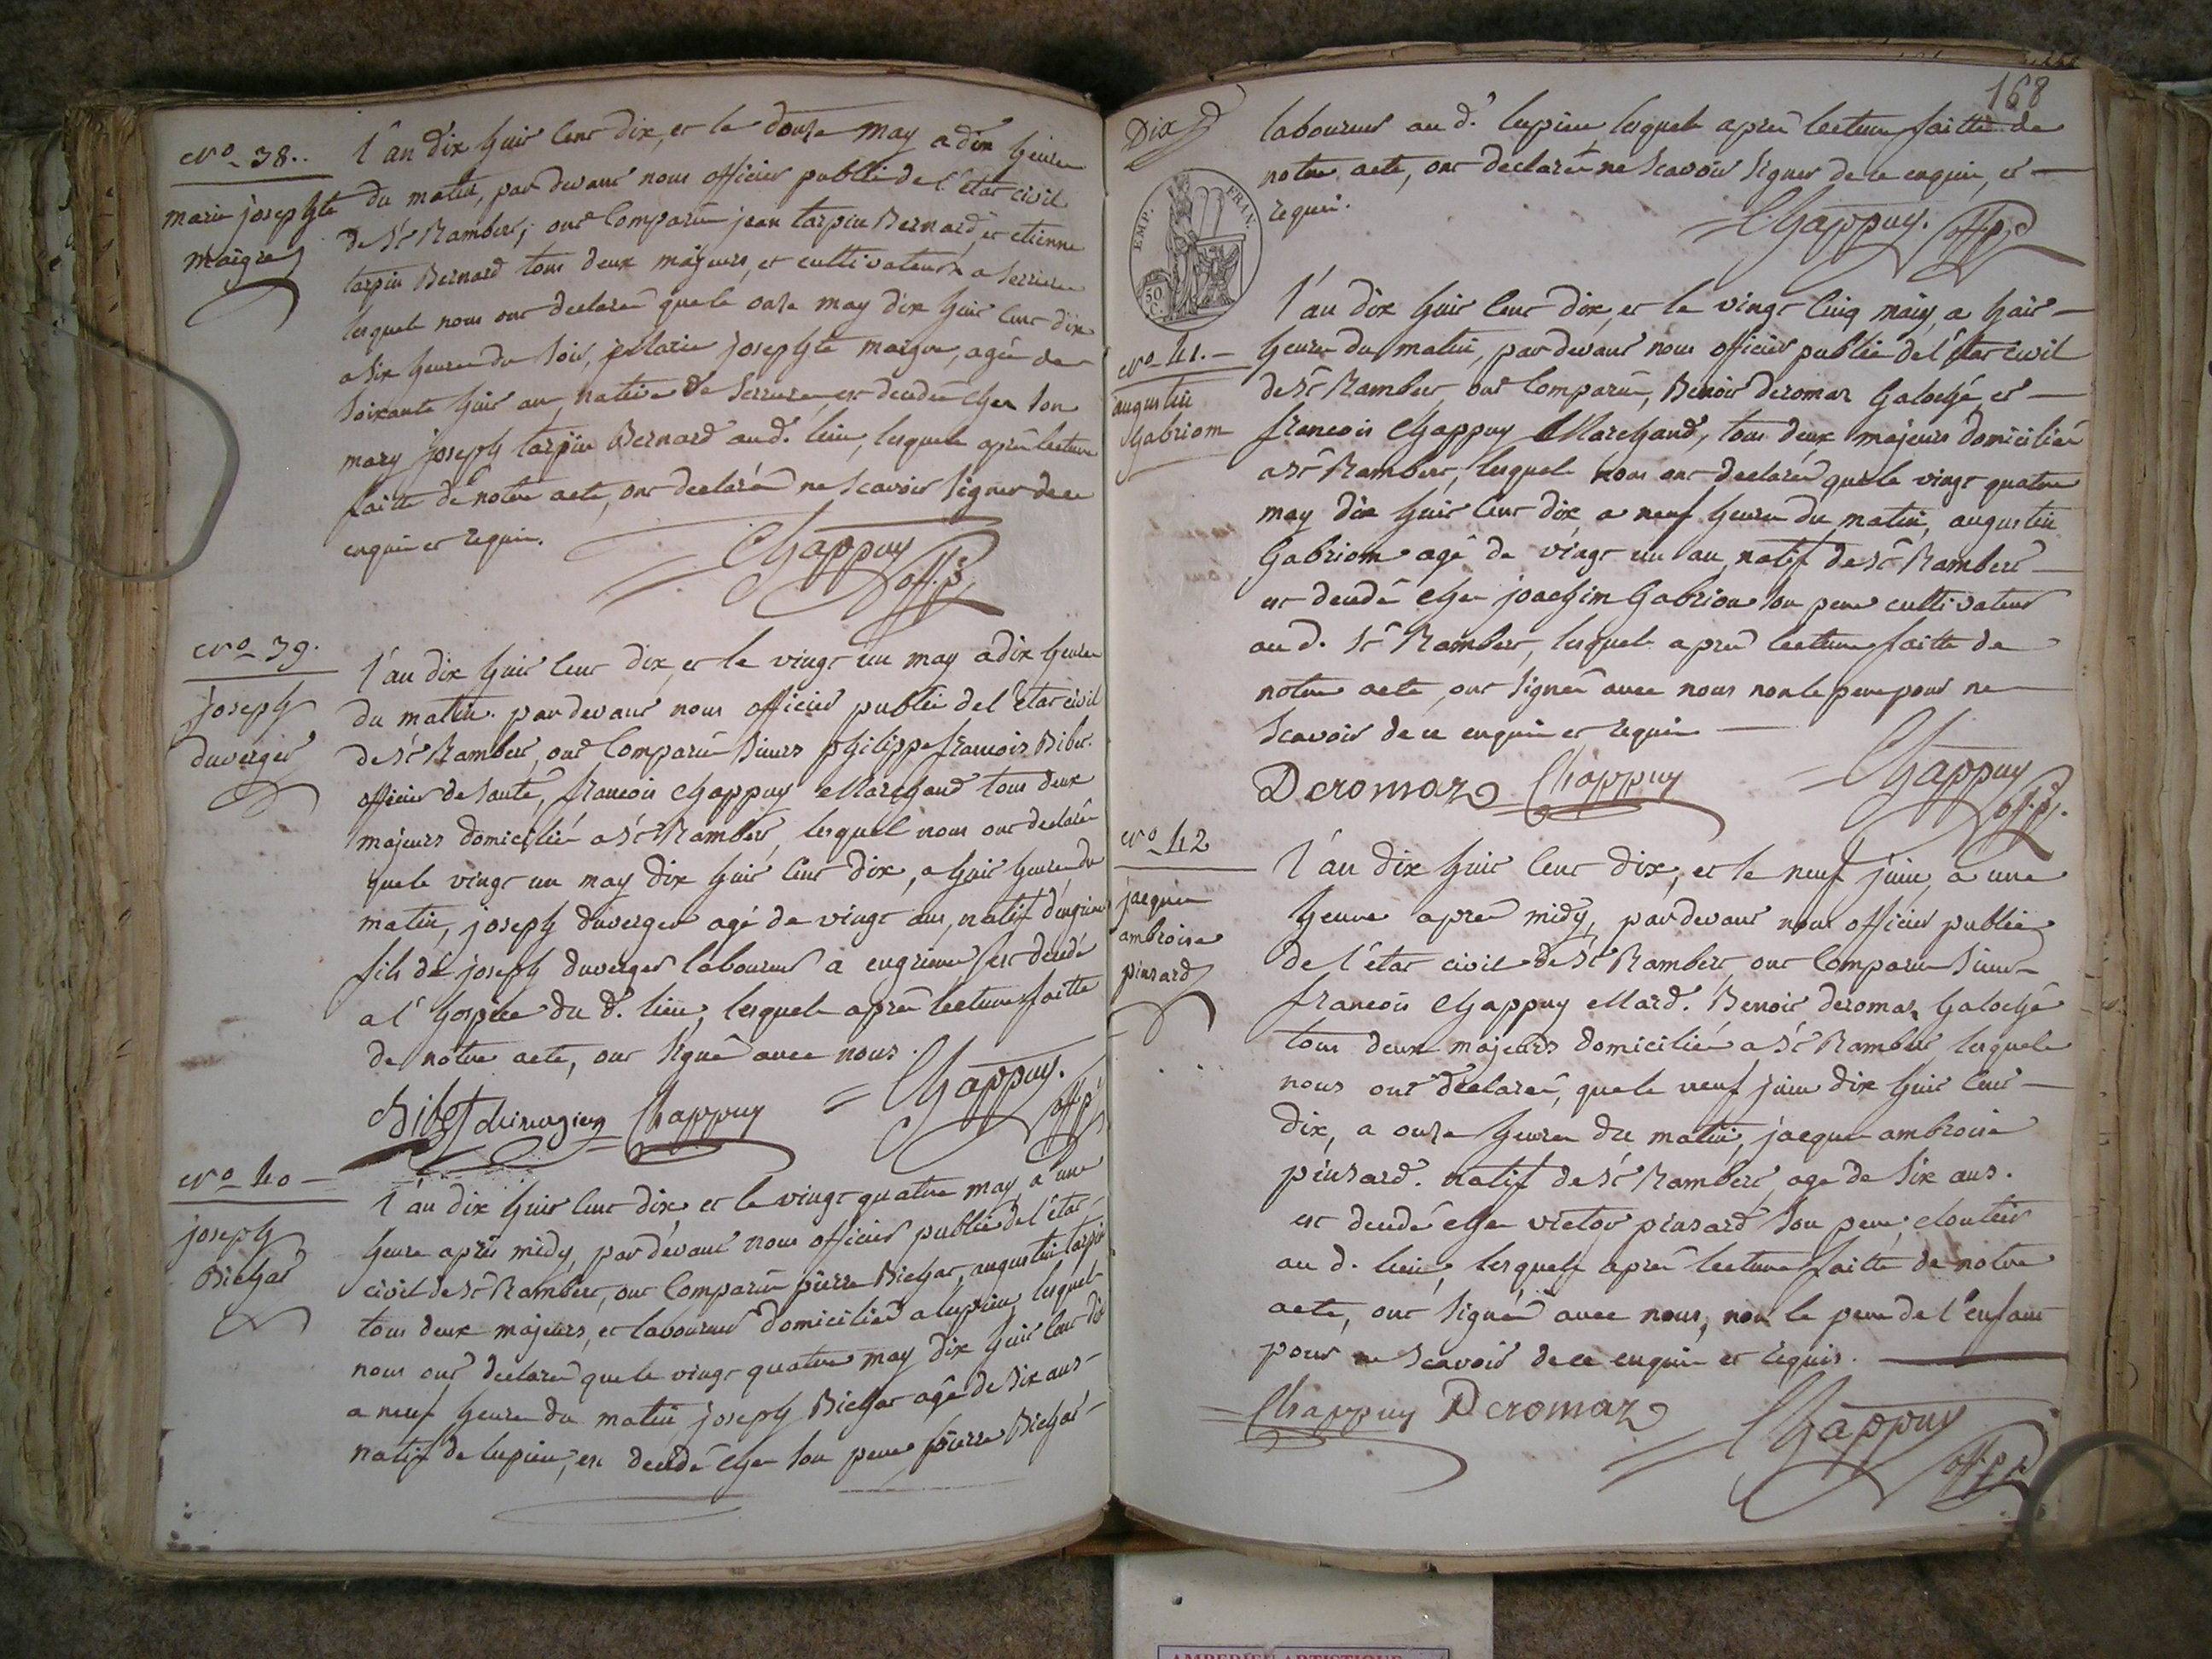 No 38.
marie josephte
maigre
L'an dix huit cent dix, et le douze may a dix heures
du matin, par devant nous officier public de l'état civil
de St Rambert, ont comparu jean tarpin Bernard, et etienne
tarpin Bernard tous deux majeurs, et cultivateurs a serriere
lesquels nous ont declaré que le onze may dix huit cent dix
a six heures du soir, Marie josephte maigre, agée de
soixante huit ans, native de serriere, est decedée chez son
mary joseph tarpin Bernard aud. lieu, lesquels après lecture
faitte de notre acte, ont declaré ne scavoir signer de ce
enquis et requis.
Chappuy
off. p.
No 39.
joseph
duverger
L'an dix huit cent dix, et le vingt un may a dix heures
du matin. par devant nous officier public de l'état civil
de St Rambert, ont comparu sieurs philippe francois Bibet
officier de santé, francois Chappuy Marchand tous deux
majeurs domiciliés a St Rambert, lesquels nous ont declaré
que le vingt un may dix huit cent dix, a huit heures du
matin, joseph duverger agé de vingt ans, natif d'engrieu
fils de joseph duverger laboureur a engrieu est decedé
a l'hospice du d. lieu, lesquels après lecture faitte
de notre acte, ont signé avec nous.
Bibet Chappuy Chappuy.
off. p.
No 40
joseph
Bichat
L'an dix huit cent dix et le vingt quatre may a une
heure après midy, par devant nous officier public de l'état
civil de St Rambert, ont comparu pierre Bichat, augustin tarpin
tous deux majeurs, et laboureurs domiciliés a lupieu, lesquels
nous ont declaré que le vingt quatre may dix huit cent dix
a neuf heures du matin joseph Bichat agé de dix ans
natif de lupieu, est decedé chez son pere pierre Bichat
168
Dix
laboureur au d. lupieu lesquels après lecture faitte de
notre acte, ont declaré ne scavoir signer de ce enquis, et
requis.
Chappuy. off. p.
EMP. FRAN.
50 C.
No 41.
augustin
Gabriom
L'an dix huit cent dix, et le vingt cinq may, a huit
heures du matin, par devant nous officier public de l'état civil
de St Rambert, ont comparu, Benoit deromas Galoché, et
francois Chappuy Marchand, tous deux majeurs domiciliés
a St Rambert, lesquels nous ont declaré que le vingt quatre
may dix huit cent dix a neuf heures du matin, augustin
Gabriom agé de vingt un an, natif de St Rambert
est decedé chez joachim Gabriom son pere cultivateur
au d. St Rambert, lesquels après lecture faitte de
notre acte, ont signé avec nous non le pere pour ne
scavoir de ce enquis et requis
Deromaz Chappuy Chappuy
off. p.
No 42
jacques
ambroise
pinsard
L'an dix huit cent dix, et le neuf juin, a une
heure après midy, par devant nous officier public
de l'état civil de St Rambert ont comparu sieur
francois Chappuy Mard. Benoit deromaz Galoché
tous deux majeurs domiciliés a St Rambert lesquels
nous ont declaré, que le neuf juin dix huit cent
dix, a onze heures du matin, jacques ambroise
pinsard. natif de St Rambert, agé de six ans.
est decedé chez victor pinsard son pere, cloutier
au d. lieu, lesquels après lecture faitte de notre
acte, ont signé avec nous, non le pere de l'enfant
pour ne scavoir de ce enquis et requis.
Chappuy Deromaz Chappuy
off. p.
AMBERIEU ARTISTIQUE